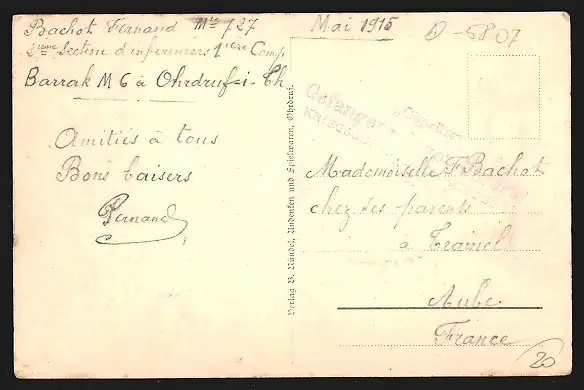 Bachot Fernand Mle 727
2ieme Section d'infirmiers 1iere Comp
Barrak M 6 à Ohrdruf-i-Th
Amitiés à tous
Bons baisers
Fernand
Verlag B. Nündel, Andenken und Spielwaren, Ohrdruf.
Mai 1915
D-5807
Gefangenen
Mademoiselle F Bachot
chez ses parents
à Trainel
Aube
France
20